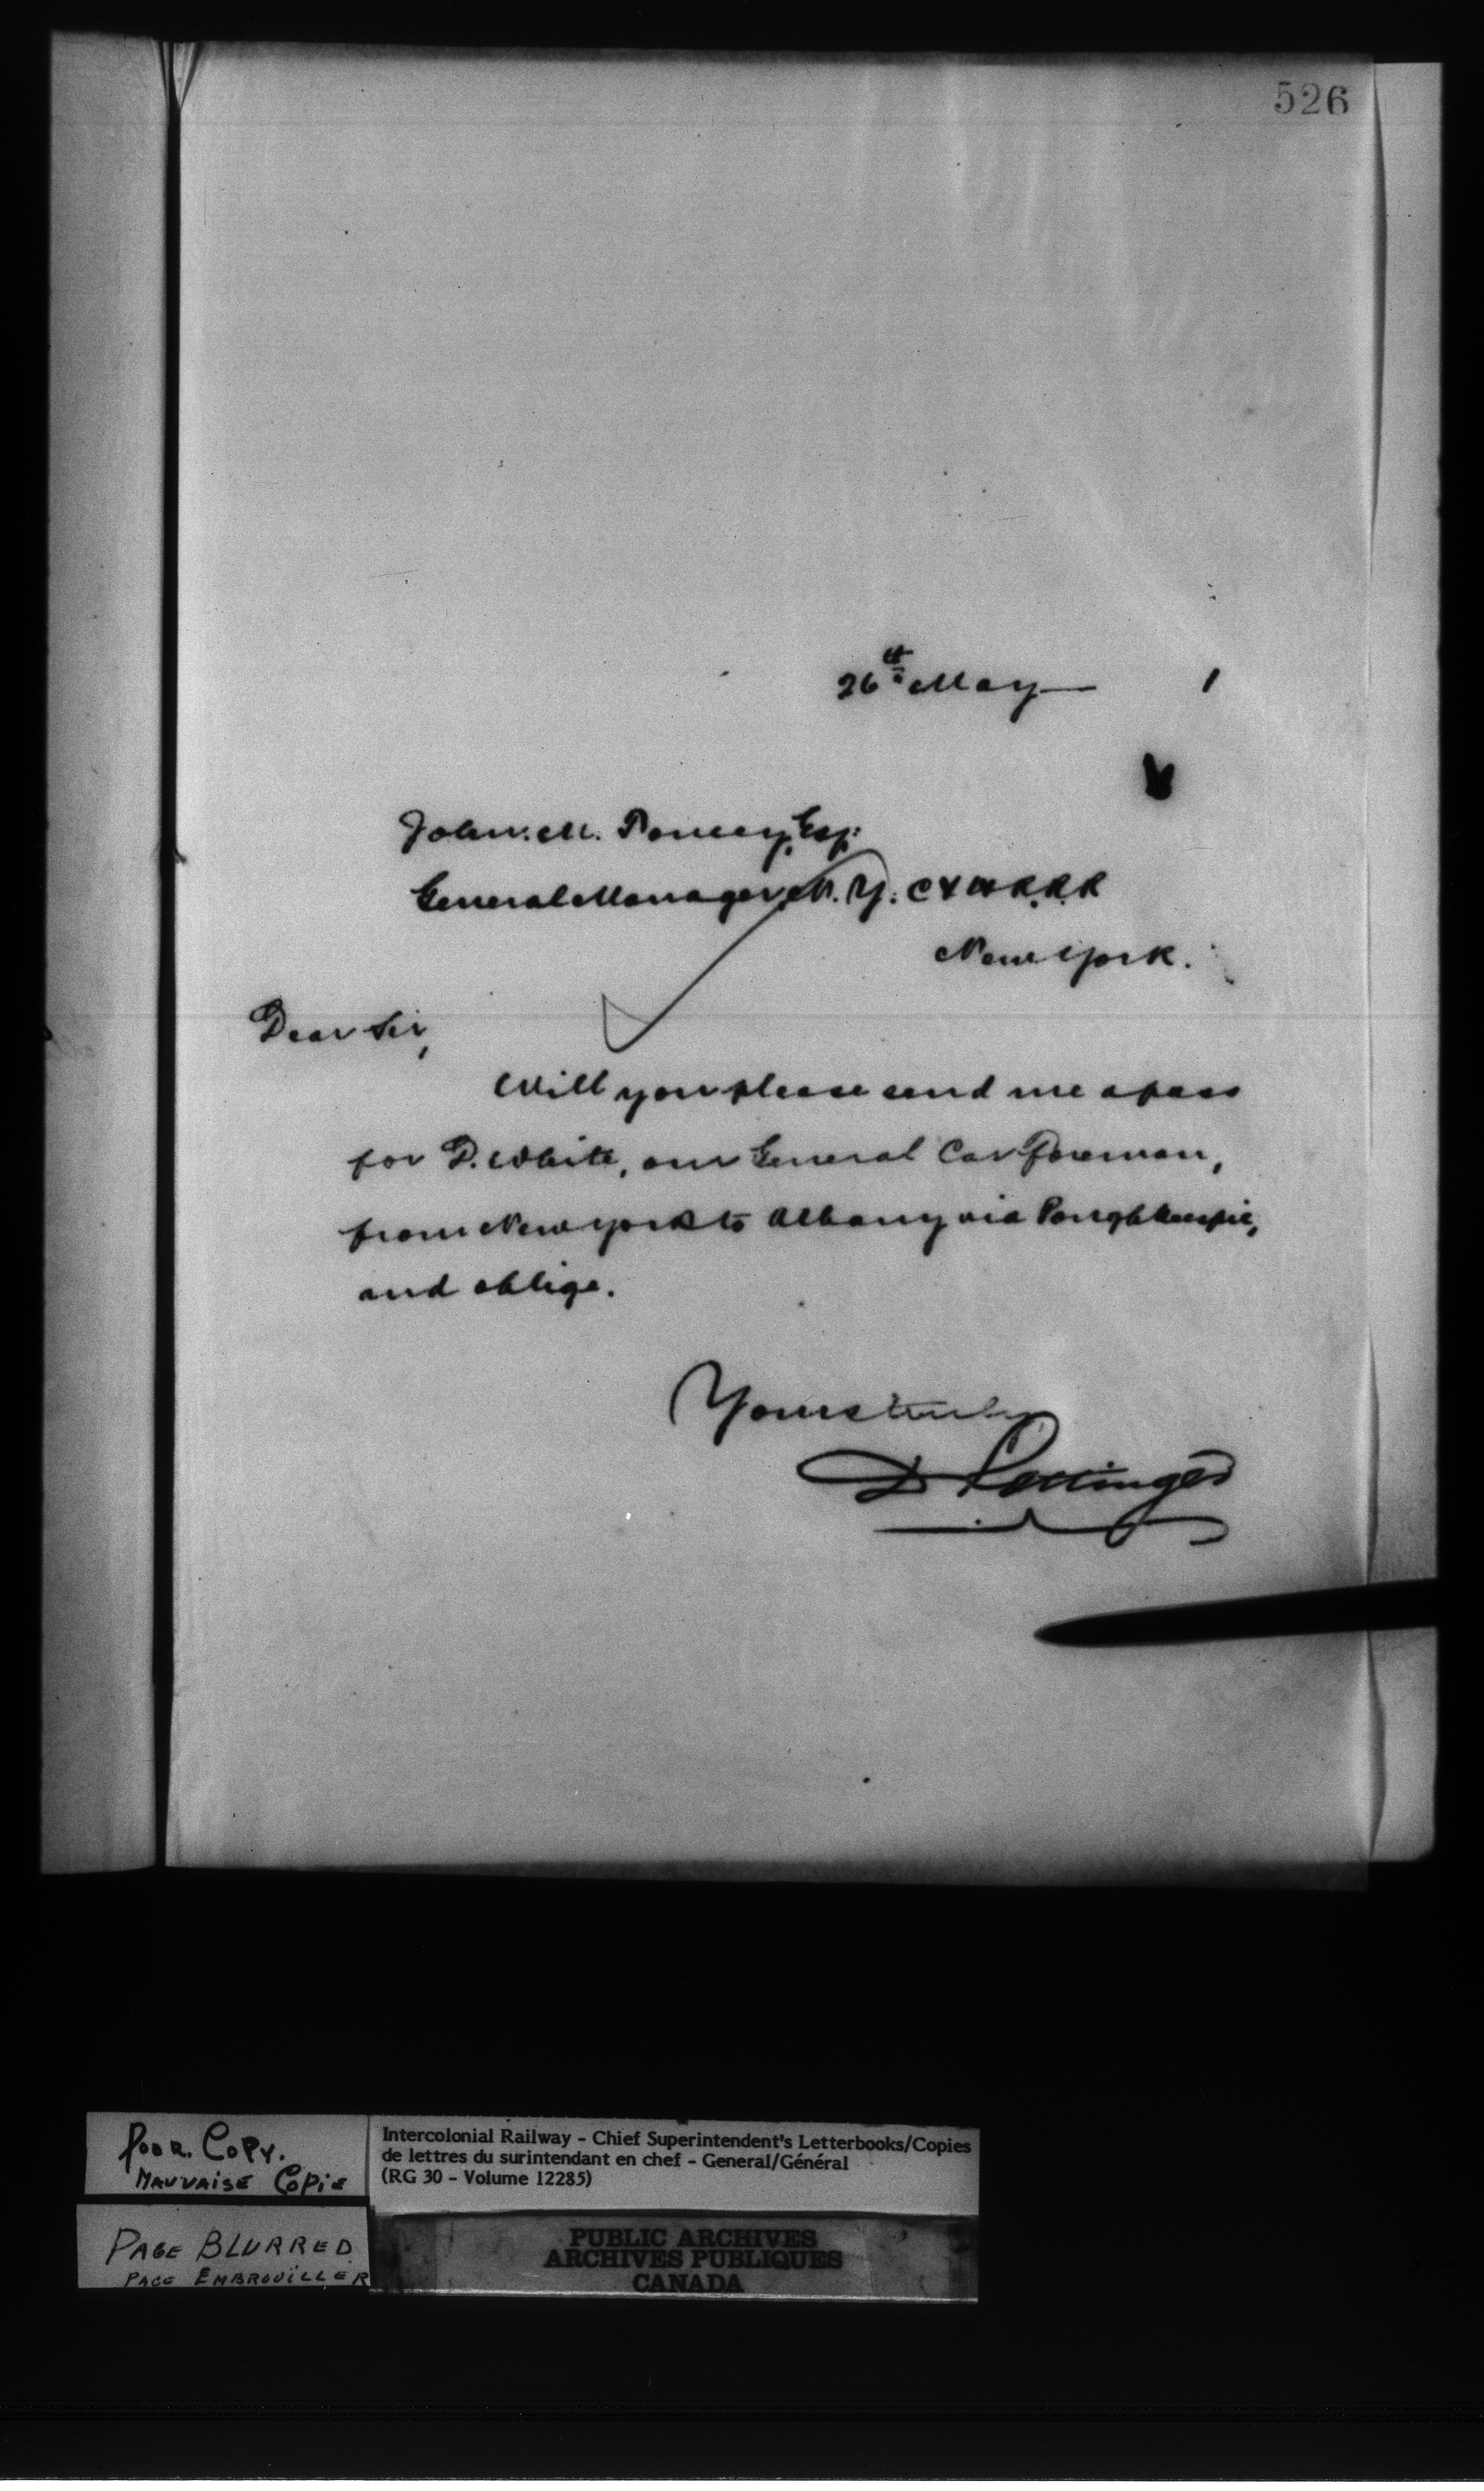 526
26th May 1
John. M. Toucey, Esq:
General Manager, N. Y. C & H R. R. R
New York.
Dear Sir,
Will you please send me a pass
for D. White, our General Car Foreman,
from New York to Albany via Poughkeepsie,
and oblige.
Yours truly
D Pottinger
POOR. COPY.
MAUVAISE COPIE
Intercolonial Railway - Chief Superintendent's Letterbooks/Copies
de lettres du surintendant en chef - General/Général
(RG 30 - Volume 12285)
PAGE BLURRED
PAGE EMBROUILLER
PUBLIC ARCHIVES
ARCHIVES PUBLIQUES
CANADA